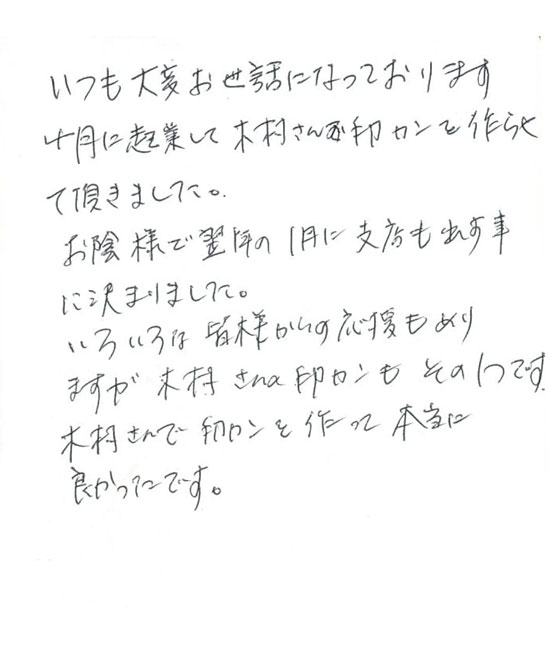 いつも大変お世話になっております
十月に起業して木村さんで印カンを作らせ
て頂きました。
お陰様で翌年の1月に支店も出す事
に決まりました。
いろいろな皆様からの応援もあり
ますが木村さんの印カンもその1つです
木村さんで印カンを作って本当に
良かったです。